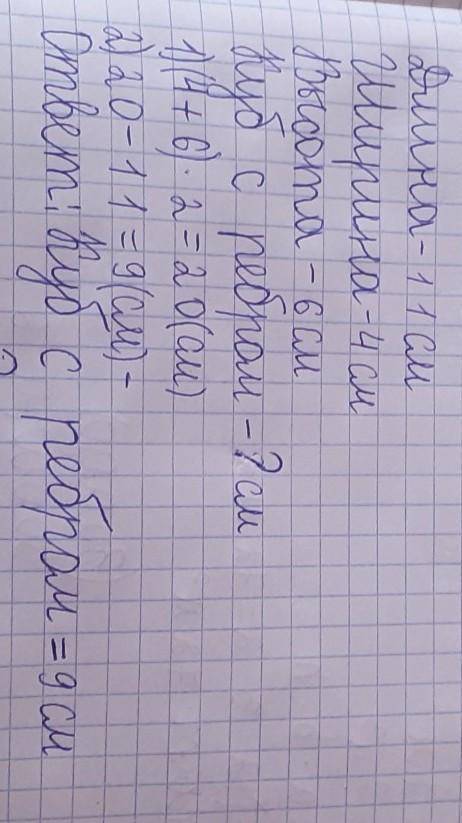 Длина - 11 см
Ширина - 4 см
Высота - 6 см
Куб с ребрам - ? см
1) (4 + 6) · 2 = 20 (см)
2) 20 - 11 = 9 (см) -
Ответ: Куб с ребрам = 9 см